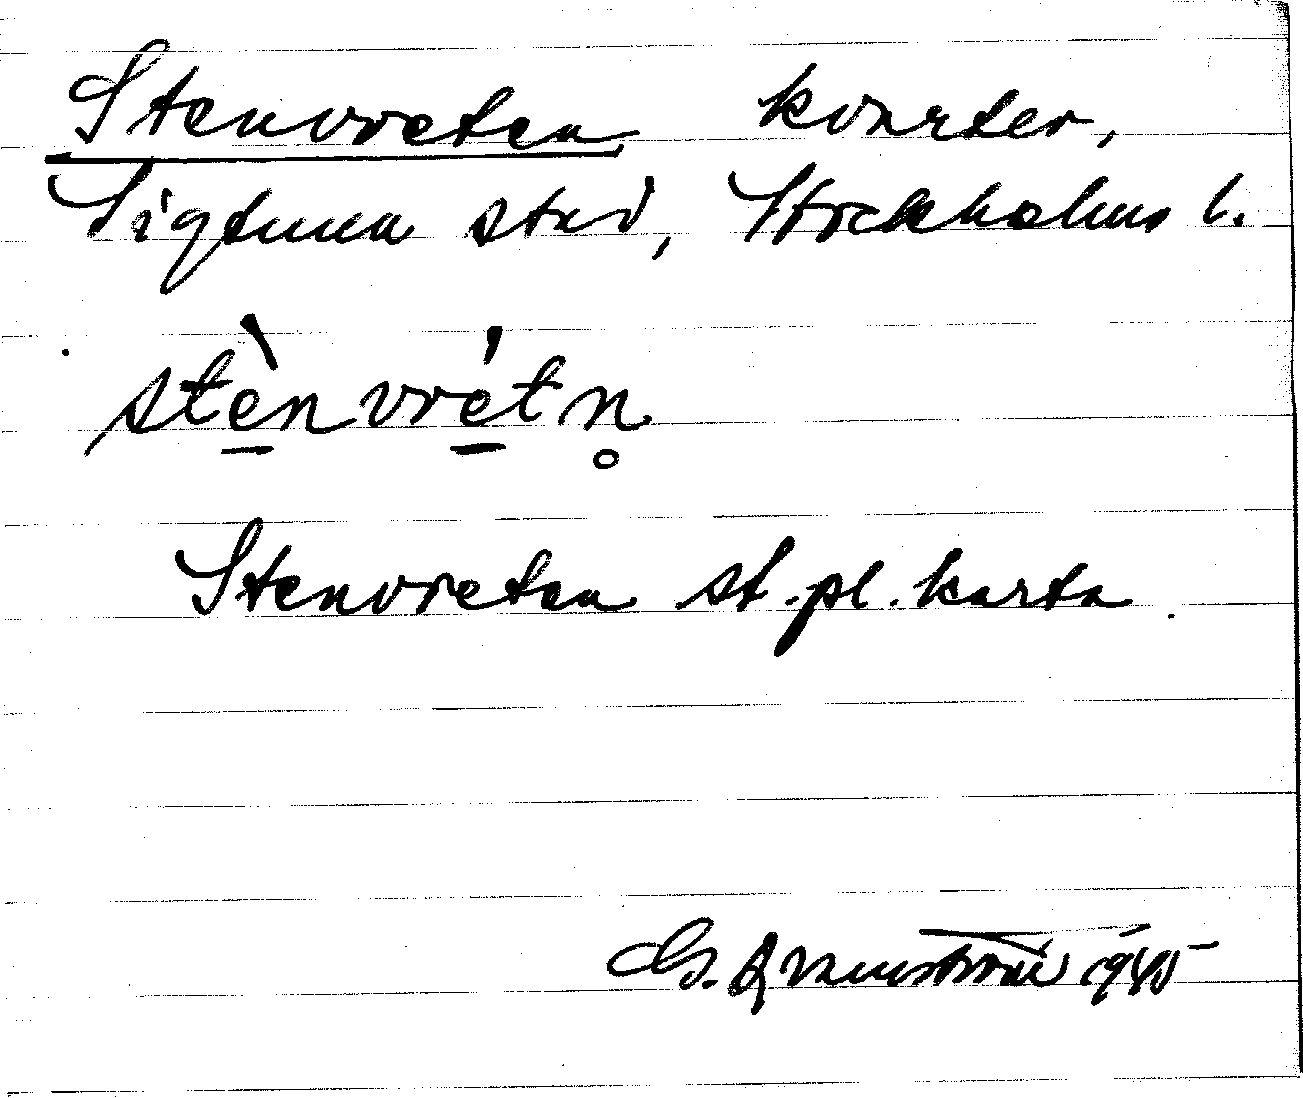 Stenvreten kvarter,
Sigtuna stad, Stockholms l.
stè̱nvré̱tn̥
Stenvreten st.pl.karta.
G. 1945